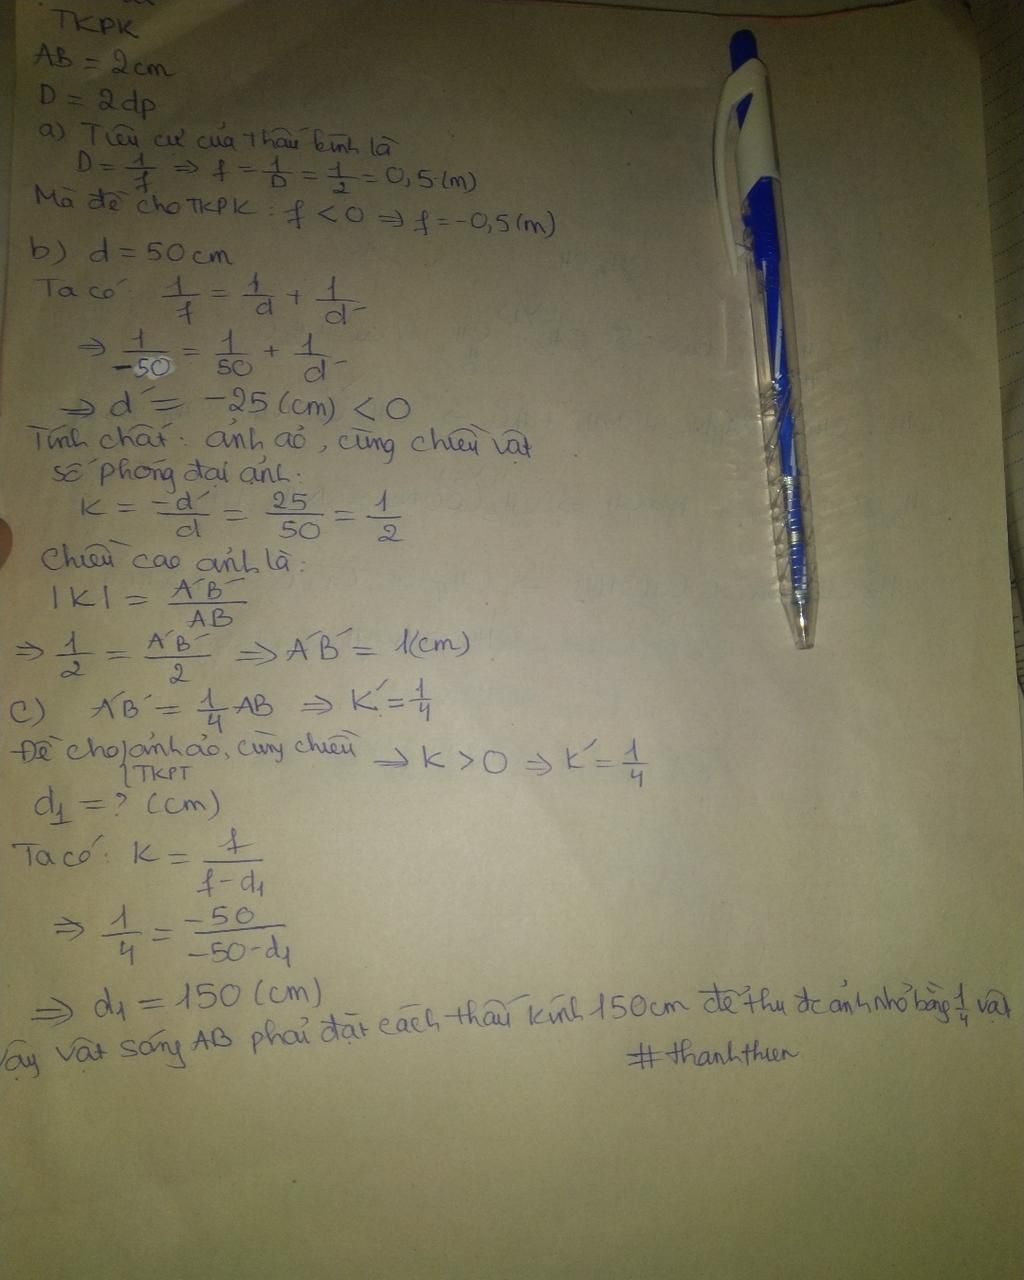 TKPK
AB = 2cm
D = 2dp
a) Tiêu cự của thấu kính là
D = 1/f ⇒ f = 1/D = 1/2 = 0,5 (m)
Mà đề cho TKPK : f < 0 ⇒ f = -0,5 (m)
b) d = 50 cm
Ta có: 1/f = 1/d + 1/d'
⇒ 1/-50 = 1/50 + 1/d'
⇒ d' = -25 (cm) < 0
Tính chất: ảnh ảo, cùng chiều vật
số phóng đại ảnh:
K = -d'/d = 25/50 = 1/2
Chiều cao ảnh là:
|K| = A'B'/AB
⇒ 1/2 = A'B'/2 ⇒ A'B' = 1(cm)
c) A'B' = 1/4 AB ⇒ K' = 1/4
Đề cho { ảnh ảo, cùng chiều ⇒ K > 0 ⇒ K' = 1/4
TKPT
d1 = ? (cm)
Ta có: K = f/f-d1
⇒ 1/4 = -50/-50-d1
⇒ d1 = 150 (cm)
Vậy vật sáng AB phải đặt cách thấu kính 150cm để thu đc ảnh nhỏ bằng 1/4 vật
#thanhthien